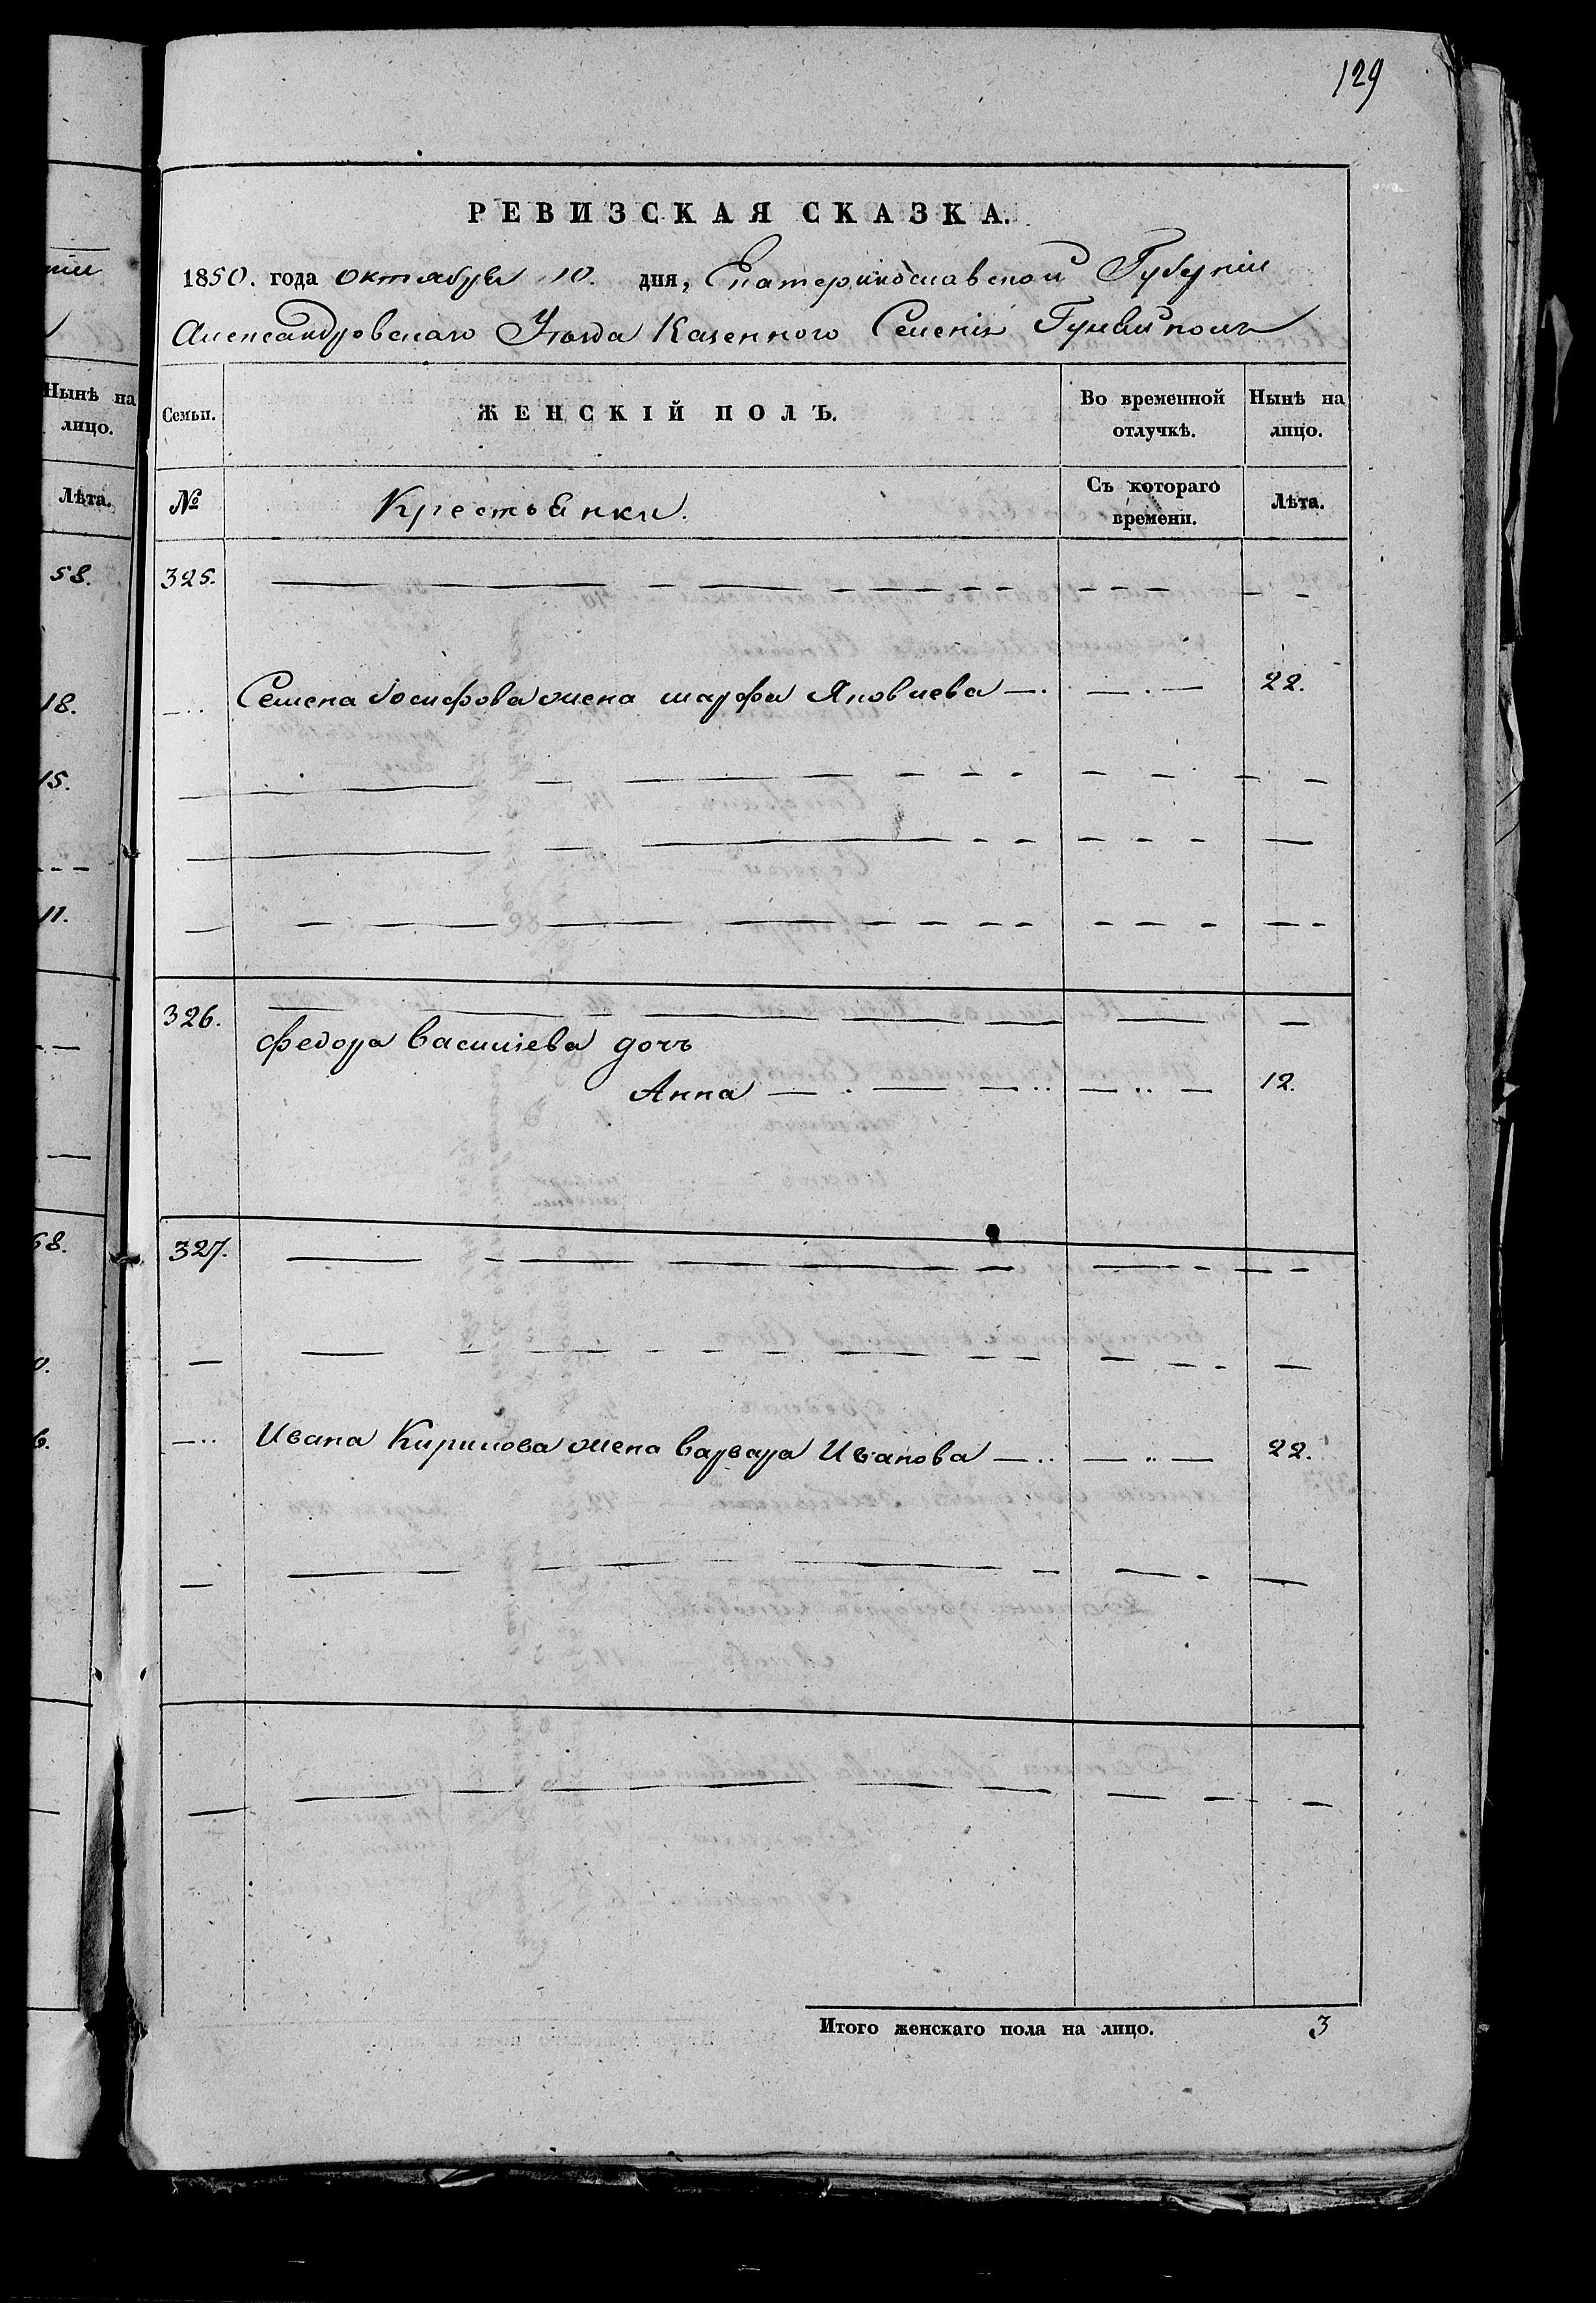 129
РЕВИЗСКАЯ СКАЗКА.
1850. года октября 10. дня, Екатеринославской Губерніи
Александровскаго Уѣзда Казенного Селенія Гуляйполя
Семьи. ЖЕНСКІЙ ПОЛЪ. Во временной отлучкѣ. Нынѣ на лицо.
№ Крестьянки. Съ котораго времени. Лѣта.
325.
Семена Іосифова жена марфа Яковлева 22.
326.
федора василіева дочь
Анна 12.
327.
Ивана Кирилова жена варвара Иванова 22.
Итого женскаго пола на лицо. 3
Нынѣ на
лицо.
Лѣта.
58.
18.
15.
11.